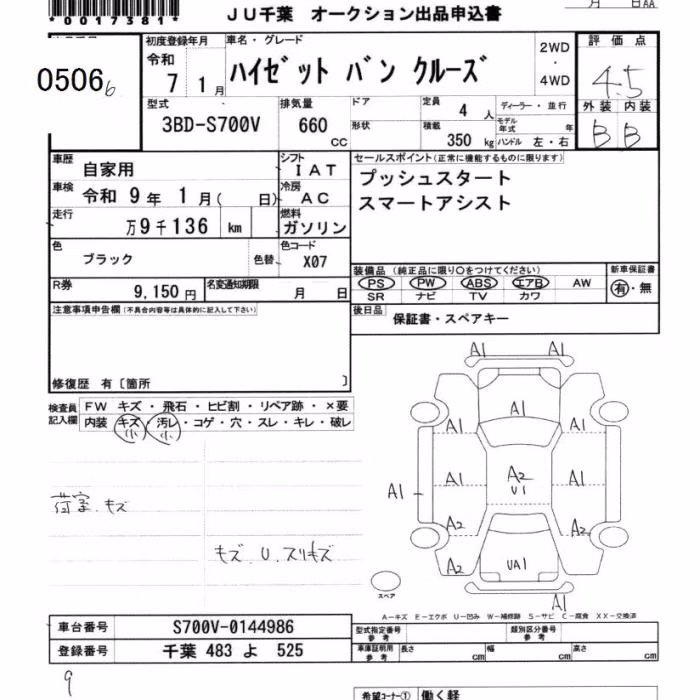 *0017381*
JU千葉 オークション出品申込書
月 日AA
0506 6
初度登録年月 令和 7 1月
車名・グレード ハイゼット バン クルーズ
2WD ・ 4WD
評価点 4.5
外装 内装
B B
型式 3BD-S700V
排気量 660 CC
ドア
形状
定員 4 人
積載 350 kg
ディーラー・並行
モデル年式 年
ハンドル 左・右
車歴 自家用
シフト IAT
車検 令和 9年 1月( 日)
冷房 AC
走行 万9千136 km
燃料 ガソリン
色 ブラック 色替
色コード X07
R券 9,150円
名変通知期限 月 日
セールスポイント(正常に機能するものに限ります)
プッシュスタート
スマートアシスト
装備品 (純正品に限り○をつけてください)
PS PW ABS エアB AW
SR ナビ TV カワ
新車保証書
有・無
後日品 保証書・スペアキー
注意事項申告欄(不具合内容等は具体的に記入して下さい)
修復歴 有〔箇所 〕
検査員記入欄
FW キズ・飛石・ヒビ割・リペア跡・×要
内装 キズ・汚レ・コゲ・穴・スレ・キレ・破レ
小 小
荷室、キズ
キズ U スリキズ
A1 A1
A1
A1 A1
A1 A1 A2 U1 A1
A2 A2
A2 UA1 A2
A1
スペア
A-キズ E-エクボ U-凹み W-補修跡 S-サビ C-腐食 XX-交換済
車台番号 S700V-0144986
登録番号 千葉 483 よ 525
型式指定番号 参考
類別区分番号 参考
車庫証明用 参考 長さ cm 幅 cm 高さ cm
9
希望コーナー① 働く軽